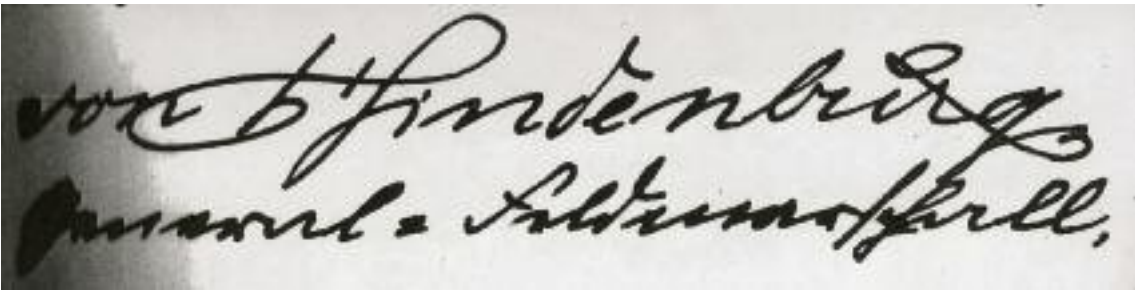 von Hindenburg
General=Feldmarschall.